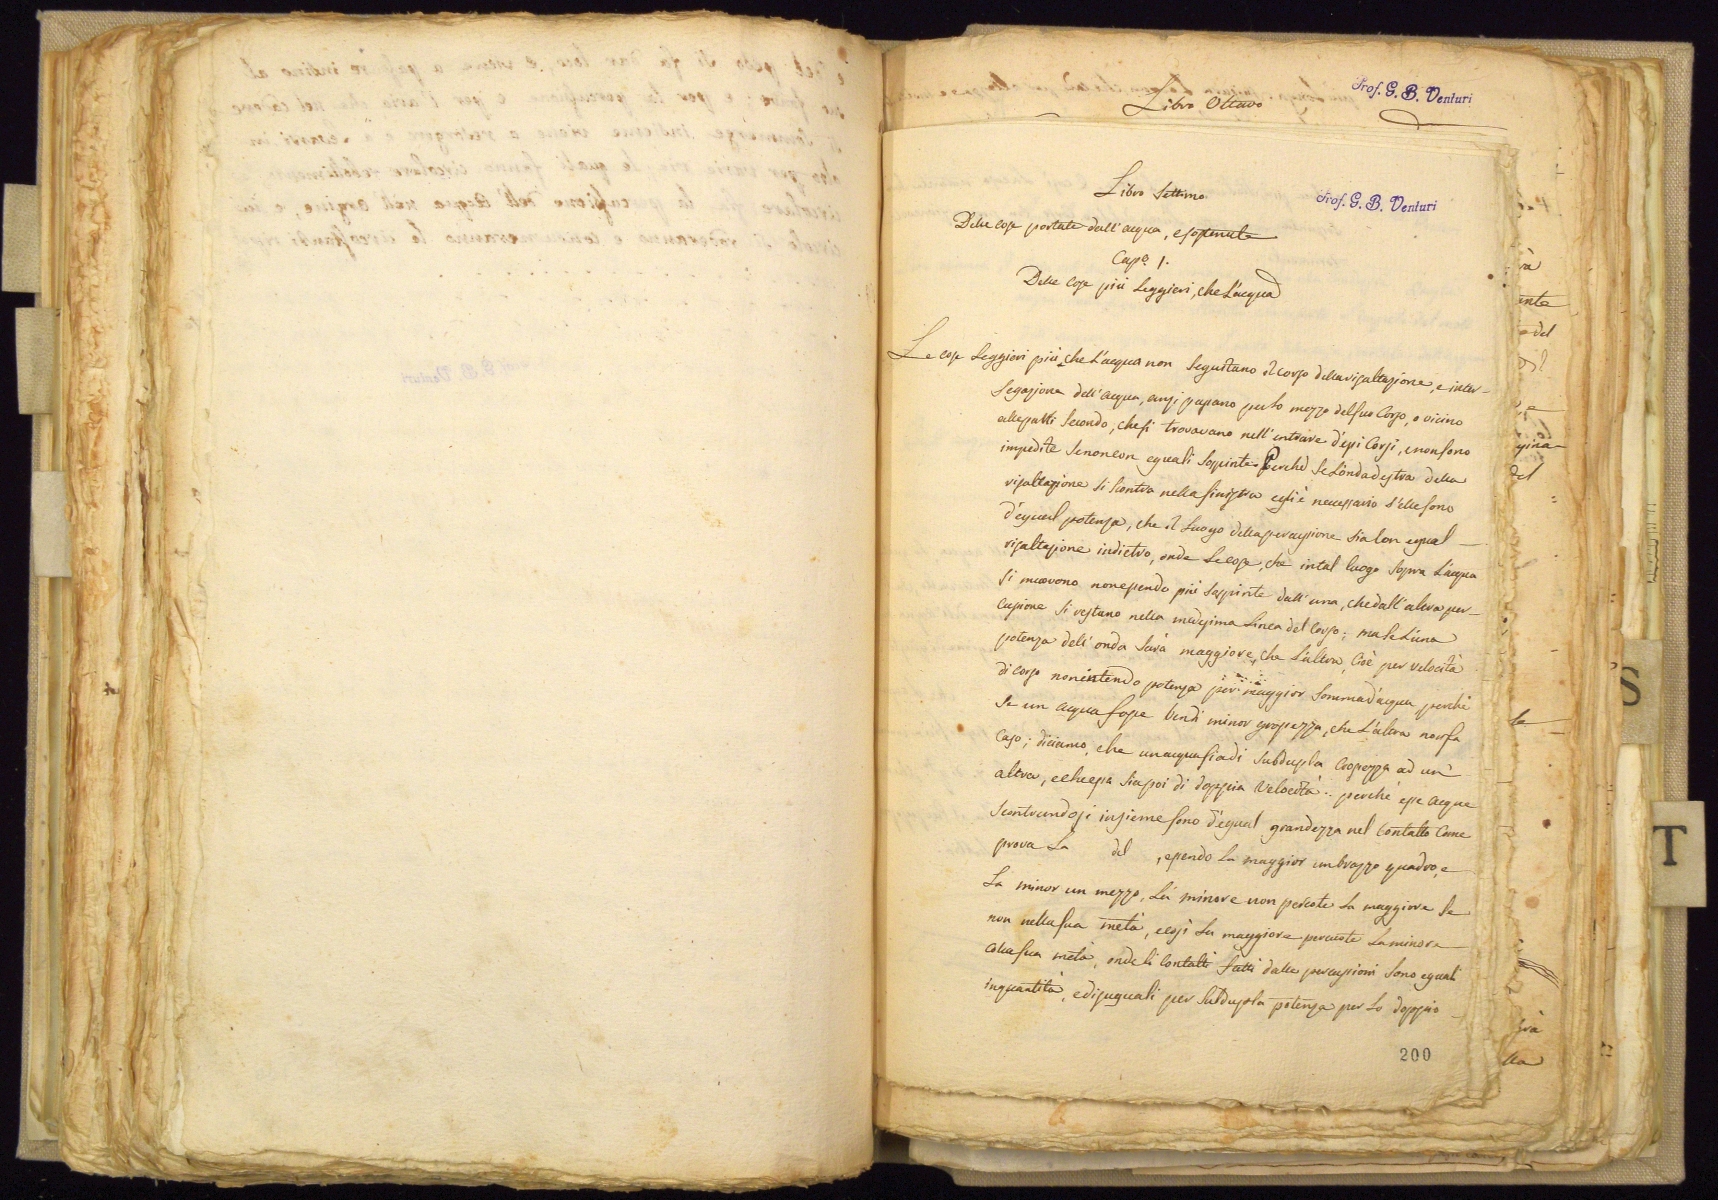 Libro Ottavo
Prof. G. B. Venturi
Libro Settimo
Prof. G. B. Venturi
Delle cose portate dall'acqua, e sostenute
Capo. 1.
Delle cose più Leggieri, che L'acqua
Le cose Leggieri più che L'acqua non seguitano il corso della risaltazione, e inter-
segazione dell'acqua, anzi passano per lo mezzo del suo Corso, o vicino
alle parti secondo, che si trovavano nell'entrare d'essi Corsi, e non sono
impedite se non con eguali sospinte. Perchè se L'onda destra della
risaltazione si scontra nella sinistra egli è necessario s'elle sono
d'egual potenza, che il Luogo della percussione sia con egual
risaltazione indietro, onde Le cose, che in tal luogo sopra L'acqua
si muovono non essendo più sospinte dall'una, che dall'altra per-
cussione si restano nella medesima Linea del Corso; ma se L'una
potenza dell'onda sarà maggiore, che L'altra, Cioè per velocità
di corso non intendo potenza per maggior somma d'acqua perchè
se un acqua fosse bendi minor grossezza, che L'altra non fa
caso; diciamo, che un acqua sia di subdupla Grossezza ad un
altra, e ch'essa sia poi di doppia Velocità: perchè esse acque
scontrandosi insieme sono d'egual grandezza nel Contatto Come
prova La del , essendo La maggior un brazzo quadro, e
La minor un mezzo, La minore non percote La maggiore se
non nella sua metà, e così La maggiore percuote La minore
colla sua metà, onde li Contatti fatti dalle percussioni sono eguali
in quantità, e disuguali per subdupla potenza per Lo doppio
200
S
T